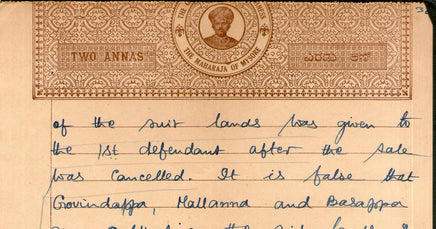 TWO ANNAS
THE MAHARAJA OF MYSORE
ಎರಡು ಆಣೆ
of the suit lands was given to
the 1st defendant after the sale
was cancelled. It is false that
Govindappa, Mallanna and Basappa